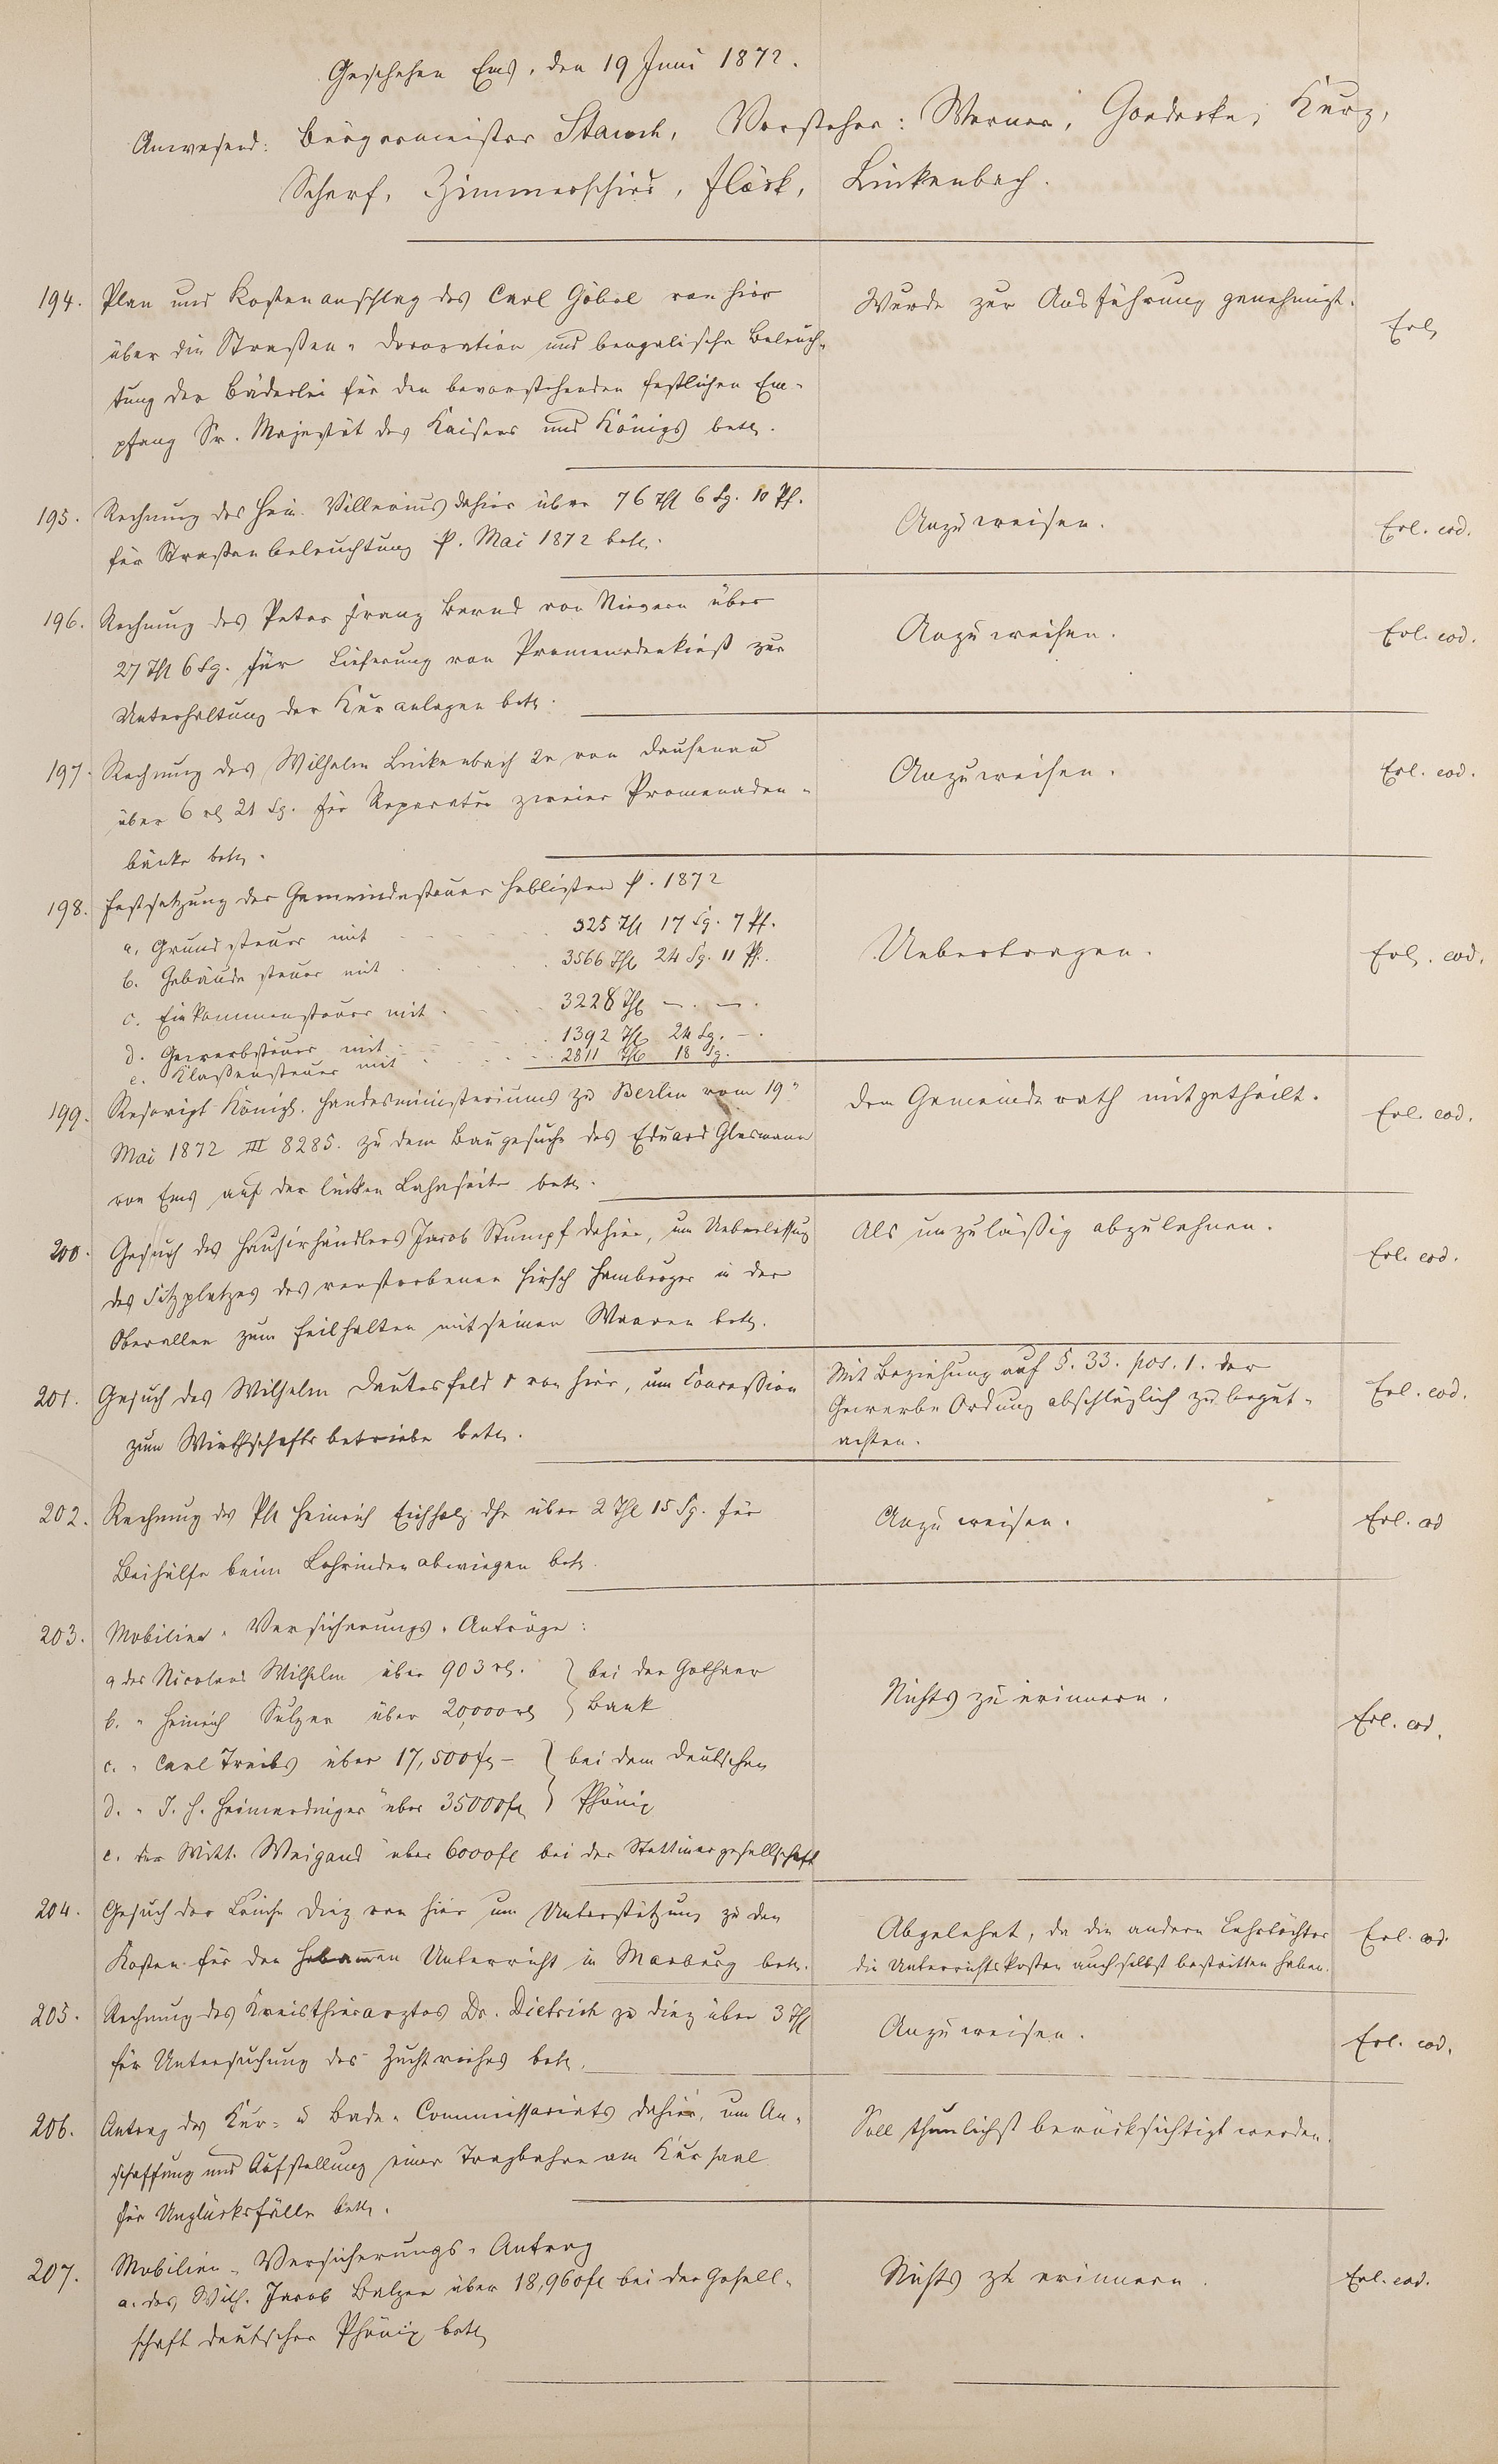 Geschehen Ems, den 19 Juni 1872.
Anwesend: Bürgermeister Stauch, Vorsteher: Werner, Goedecke, Kurz,
Scherf, Zimmerschied, Flöck, Linkenbach.
194. Plan und Kostenanschlag des Carl Göbel von hier
über die Straßen-Decoration und bengalische Beleuch-
tung der Bäderlei für den bevorstehenden festlichen Em-
pfang Sr. Majestät des Kaisers und Königs betr.
Wurde zur Ausführung genehmigt.
Erl.
195. Rechnung des Hein. Villerius dahier über 76 Thl 6 Sg. 10 Pf.
für Straßenbeleuchtung p. Mai 1872 betr.
Anzuweisen.
Erl. eod.
196. Rechnung des Peter Franz Bernd von Nievern über
27 Thl 6 Sg. für Lieferung von Promenadenkieß zur
Unterhaltung der Kuranlagen betr.
Anzuweisen.
Erl. eod.
197. Rechnung des Wilhelm Linkenbach 2r von Dausenau
über 6 rl 21 Sg. für Reparatur zweier Promenaden-
bänke betr.
Anzuweisen.
Erl. eod.
198. Festsetzung der Gemeindesteuer Heblisten p. 1872
a. Grundsteuer mit 325 Thl 17 Sg. 7 Pf.
b. Gebäudesteuer mit 3566 Thl 24 Sg. 11 Pf.
c. Einkommensteuer mit 3228 Thl —. —.
d. Gewerbsteuer mit 1392 Thl 24 Sg. —.
e. Klaßensteuer mit 2811 Thl 18 Sg.
Uebertragen.
Erl. eod.
199. Rescript Königl. Handesministeriums zu Berlin vom 19n
Mai 1872 III 8285. zu dem Baugesuche des Eduard Glasmann
von Ems auf der linken Lahnseite betr.
Dem Gemeinderath mitgetheilt.
Erl. eod.
200. Gesuch des Hausirhändlers Jacob Stumpf dahier, um Ueberlassung
des Sitzplatzes des verstorbenen Hirsch Hamburger in der
Oberallee zum Feilhalten mit seinen Waaren betr.
Als unzuläßig abzulehnen.
Erl. eod.
201. Gesuch des Wilhelm Dautesfeld von hier, um Conceßion
zum Wirthschaftsbetriebe betr.
Mit Beziehung auf §. 33. pos. 1. der
Gewerbe Ordnung abschläglich zu begut-
achten.
Erl. eod.
202. Rechnung des Ph Heinrich Eichholz dhr über 2 Thl 15 Sg. für
Beihülfe beim Lohrindenabwiegen betr.
Anzuweisen.
Erl. eod
203. Mobilien-Versicherungs-Anträge:
a des Nicolaus Wilhelm über 903 rl. } bei der Gothaer
b. " Heinrich Sulzer über 20,000 rl } Bank
c. " Carl Treibs über 17,500 fl – } bei dem Deutschen
d. " J. H. Heimerdinger über 35000 fl } Phönix
e. der Witt. Weigand über 6000 fl bei der Stettinergesellschaft
Nichts zu erinnern.
Erl. eod.
204. Gesuch der Luise Diez von hier um Unterstützung zu den
Kosten für den Hebammen Unterricht in Marburg betr.
Abgelehnt, da die andern Lehrtöchter
die Unterrichtskosten auch selbst bestritten haben.
Erl. eod.
205. Rechnung des Kreisthierarztes Dr. Dietrich zu Diez über 3 Thl
für Untersuchung des Zuchtviehes betr.
Anzuweisen.
Erl. eod.
206. Antrag des Kur- u Bade-Commissariats dahier, um An-
schaffung und Aufstellung einer Tragbahre am Kursaal
für Unglücksfälle betr.
Soll thunlichst berücksichtigt werden.
207. Mobilien-Versicherungs-Antrag
a. des Wilh. Jacob Balzer über 18,960 fl bei der Gesell-
schaft deutscher Phönix betr
Nichts zu erinnern.
Erl. eod.